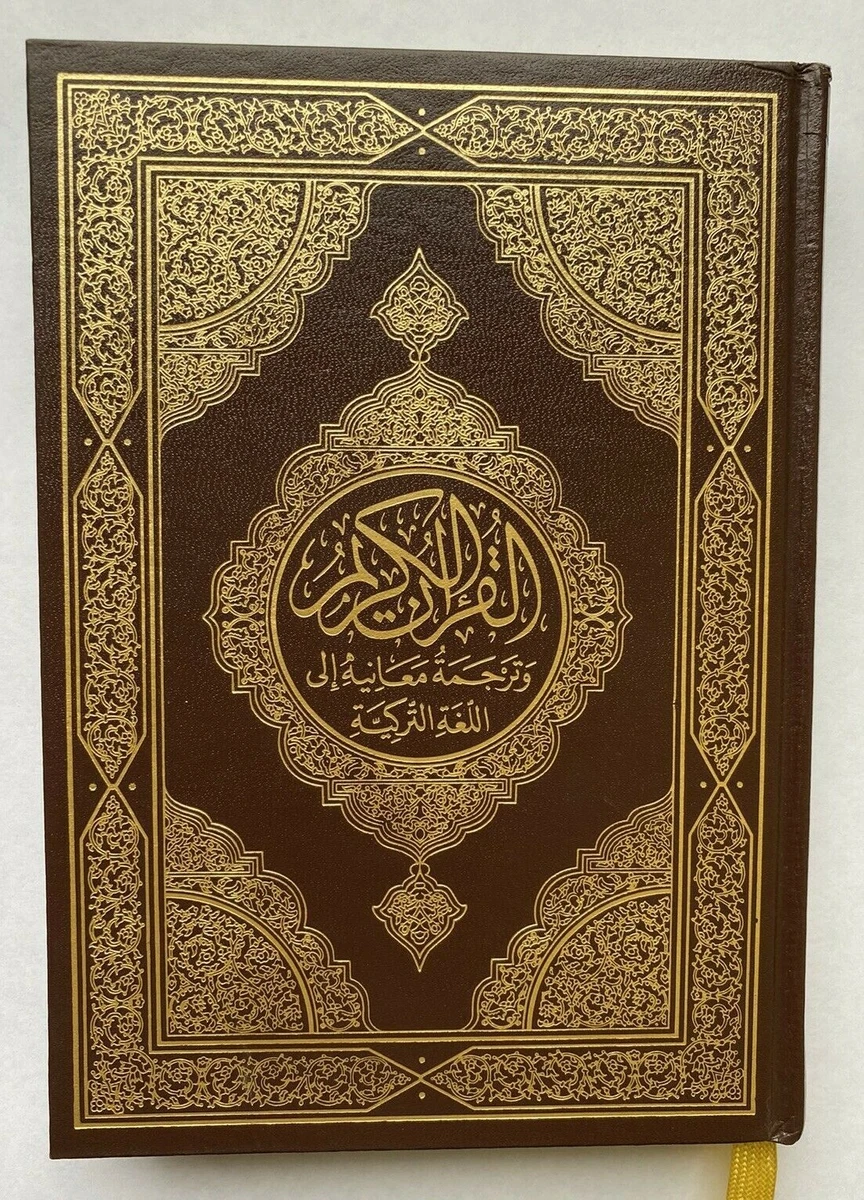 القرآن الكريم
وَتَرْجَمَةُ مَعَانِيهْ إِلى
اللُّغَةِ التُّرْكِيَّةِ